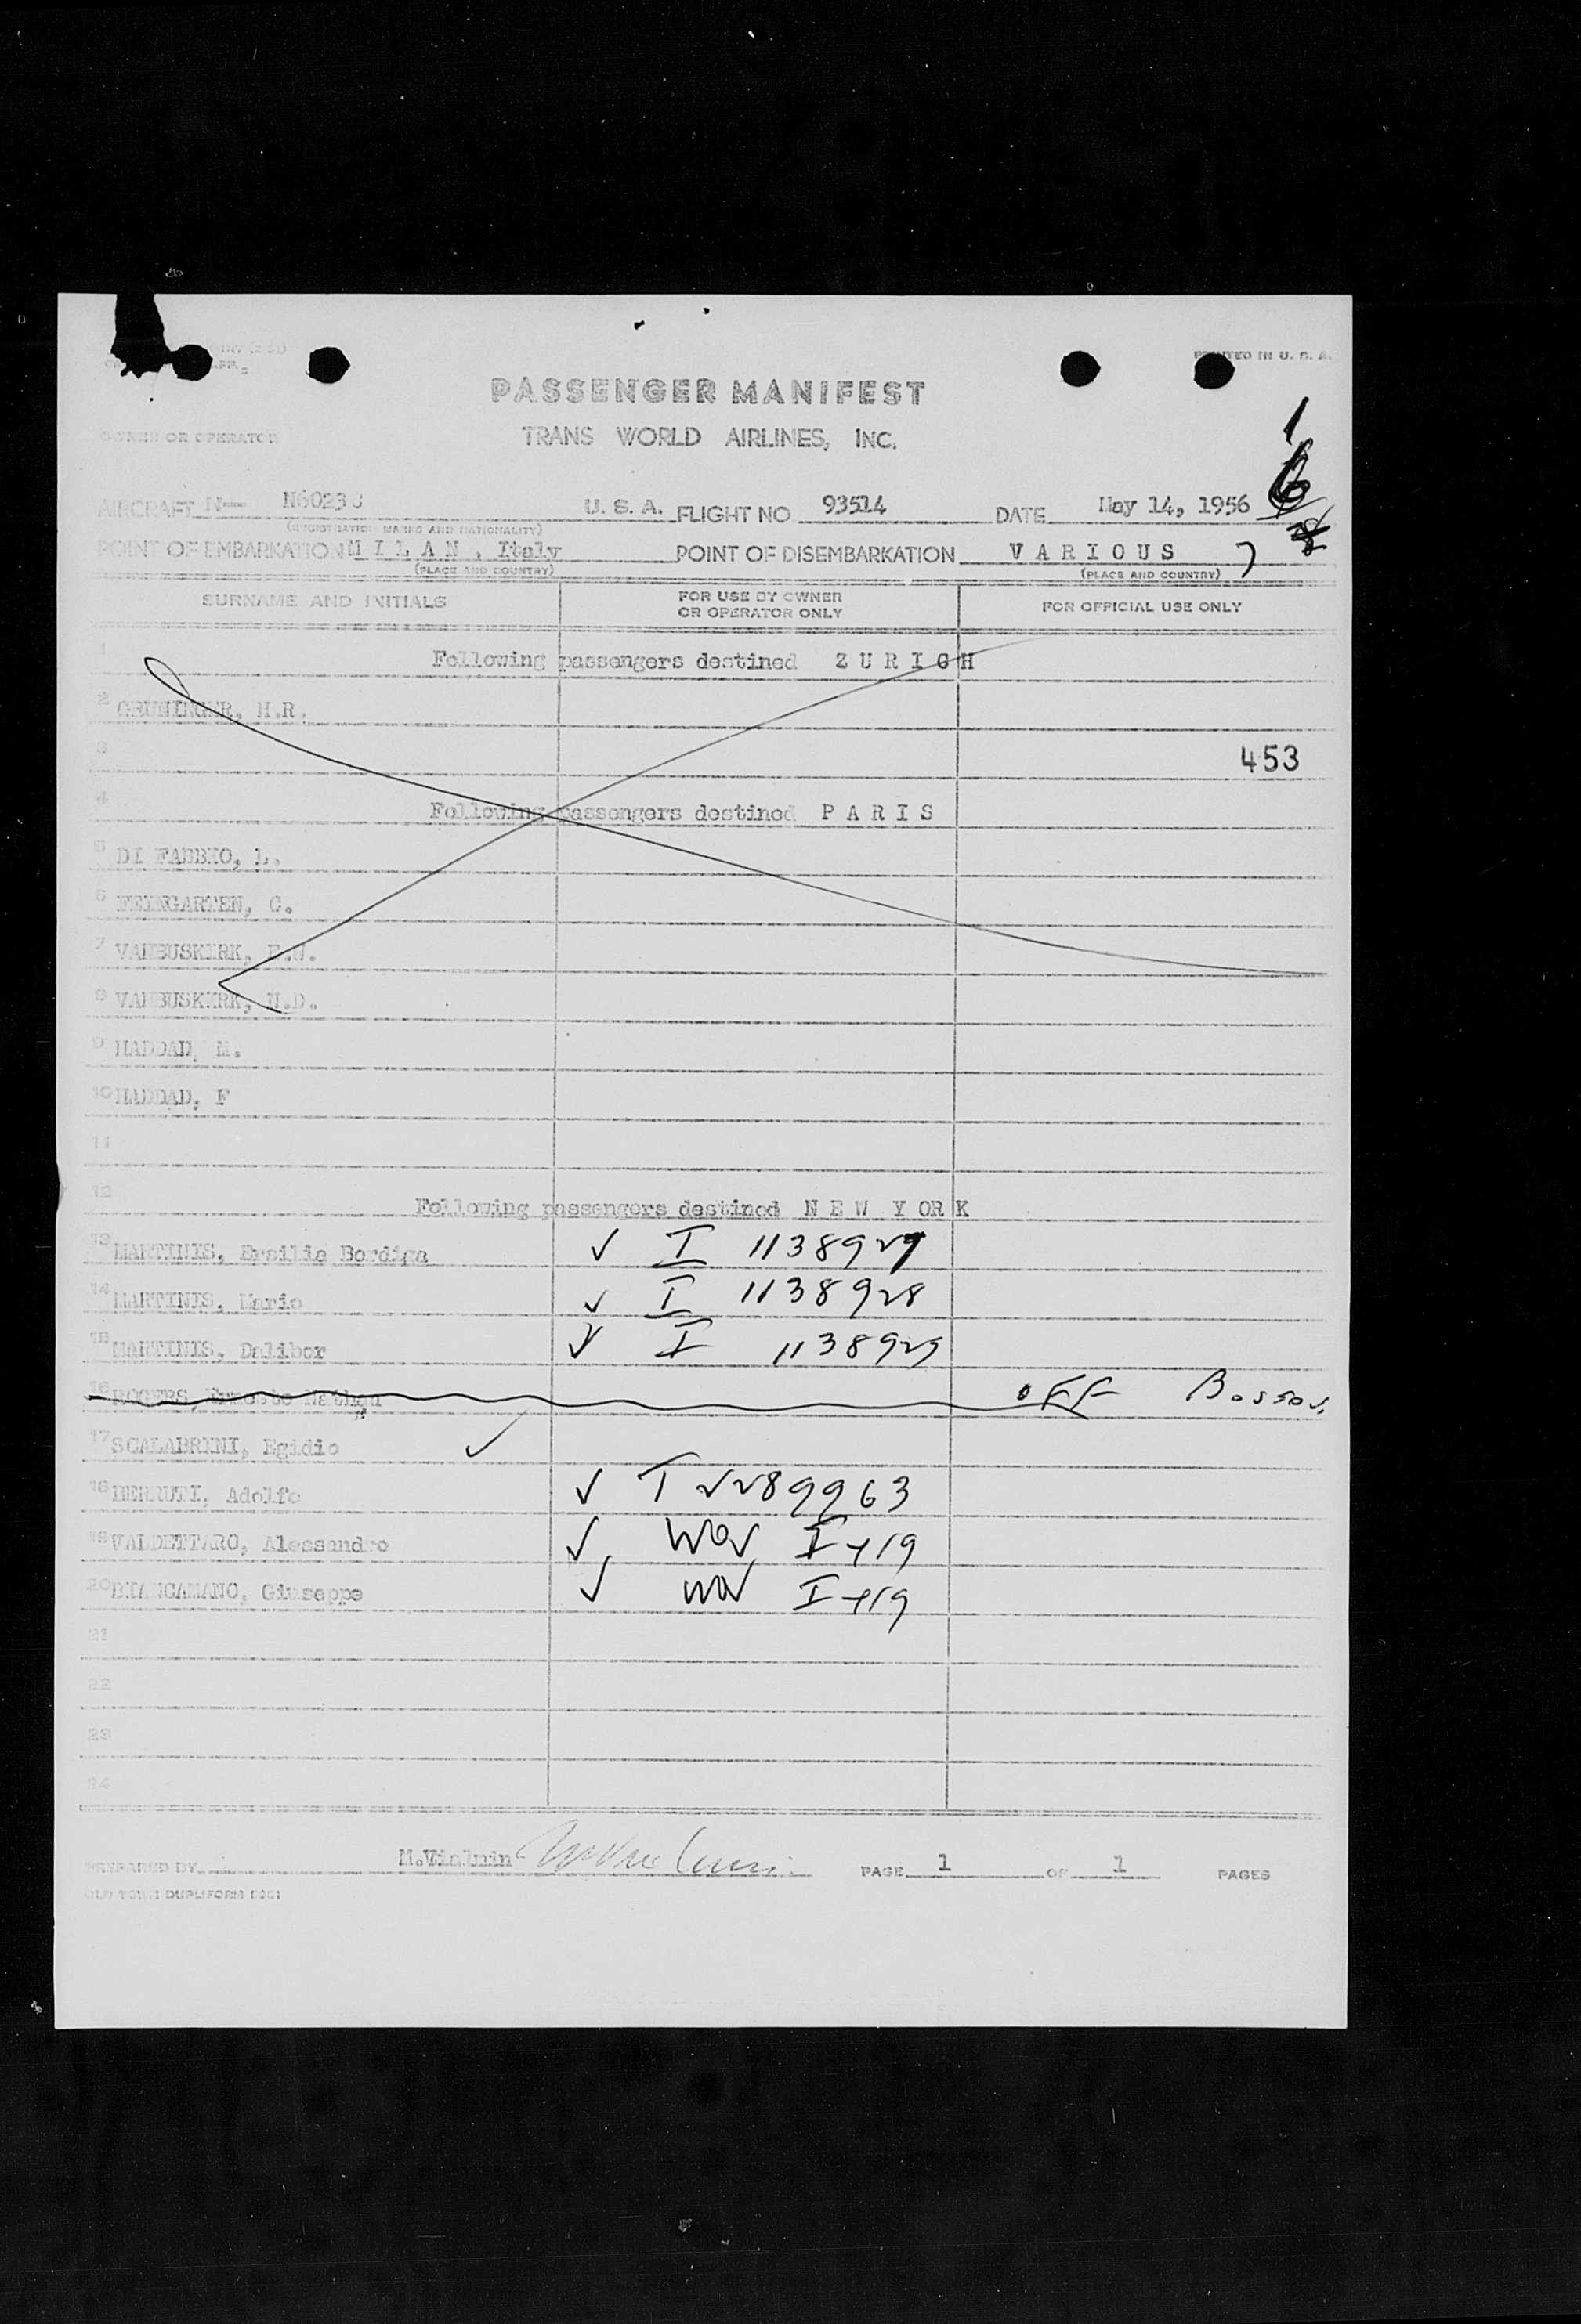 PRINTED IN U. S. A.
PASSENGER MANIFEST
OWNER OR OPERATOR
TRANS WORLD AIRLINES, INC.
1
6
AIRCRAFT N— N6023C U. S. A. FLIGHT NO 93514 DATE May 14, 1956
(REGISTRATION MARKS AND NATIONALITY)
POINT OF EMBARKATION M I L A N , Italy POINT OF DISEMBARKATION V A R I O U S 7
(PLACE AND COUNTRY) (PLACE AND COUNTRY)
SURNAME AND INITIALS FOR USE BY OWNER OR OPERATOR ONLY FOR OFFICIAL USE ONLY
1 Following passengers destined Z U R I C H
2 GRUNINGER, H.R.
3 453
4 Following passengers destined P A R I S
5 DI FABBIO, L.
6 FEINGARTEN, C.
7 VANBUSKIRK,
8 VANBUSKIRK, N.D.
9 HADDAD, M.
10 HADDAD, F
11
12 Following passengers destined N E W Y OR K
13 MARTINIS, Ersilia Bordiga ✓ I 1138929
14 MARTINIS, Mario ✓ I 1138928
15 MARTINIS, Dalibor ✓ I 1138929
16 ROGERS, Ernesto Nathan OFF Boston
17 SCALABRINI, Egidio ✓
18 BERRUTI, Adolfo ✓ I 2289963
19 VALDETTARO, Alessandro ✓ WOV I 419
20 BIANCAMANO, Giuseppe ✓ WOV I 419
21
22
23
24
PREPARED BY PAGE 1 OF 1 PAGES
OLD TOWN DUPLIFORM